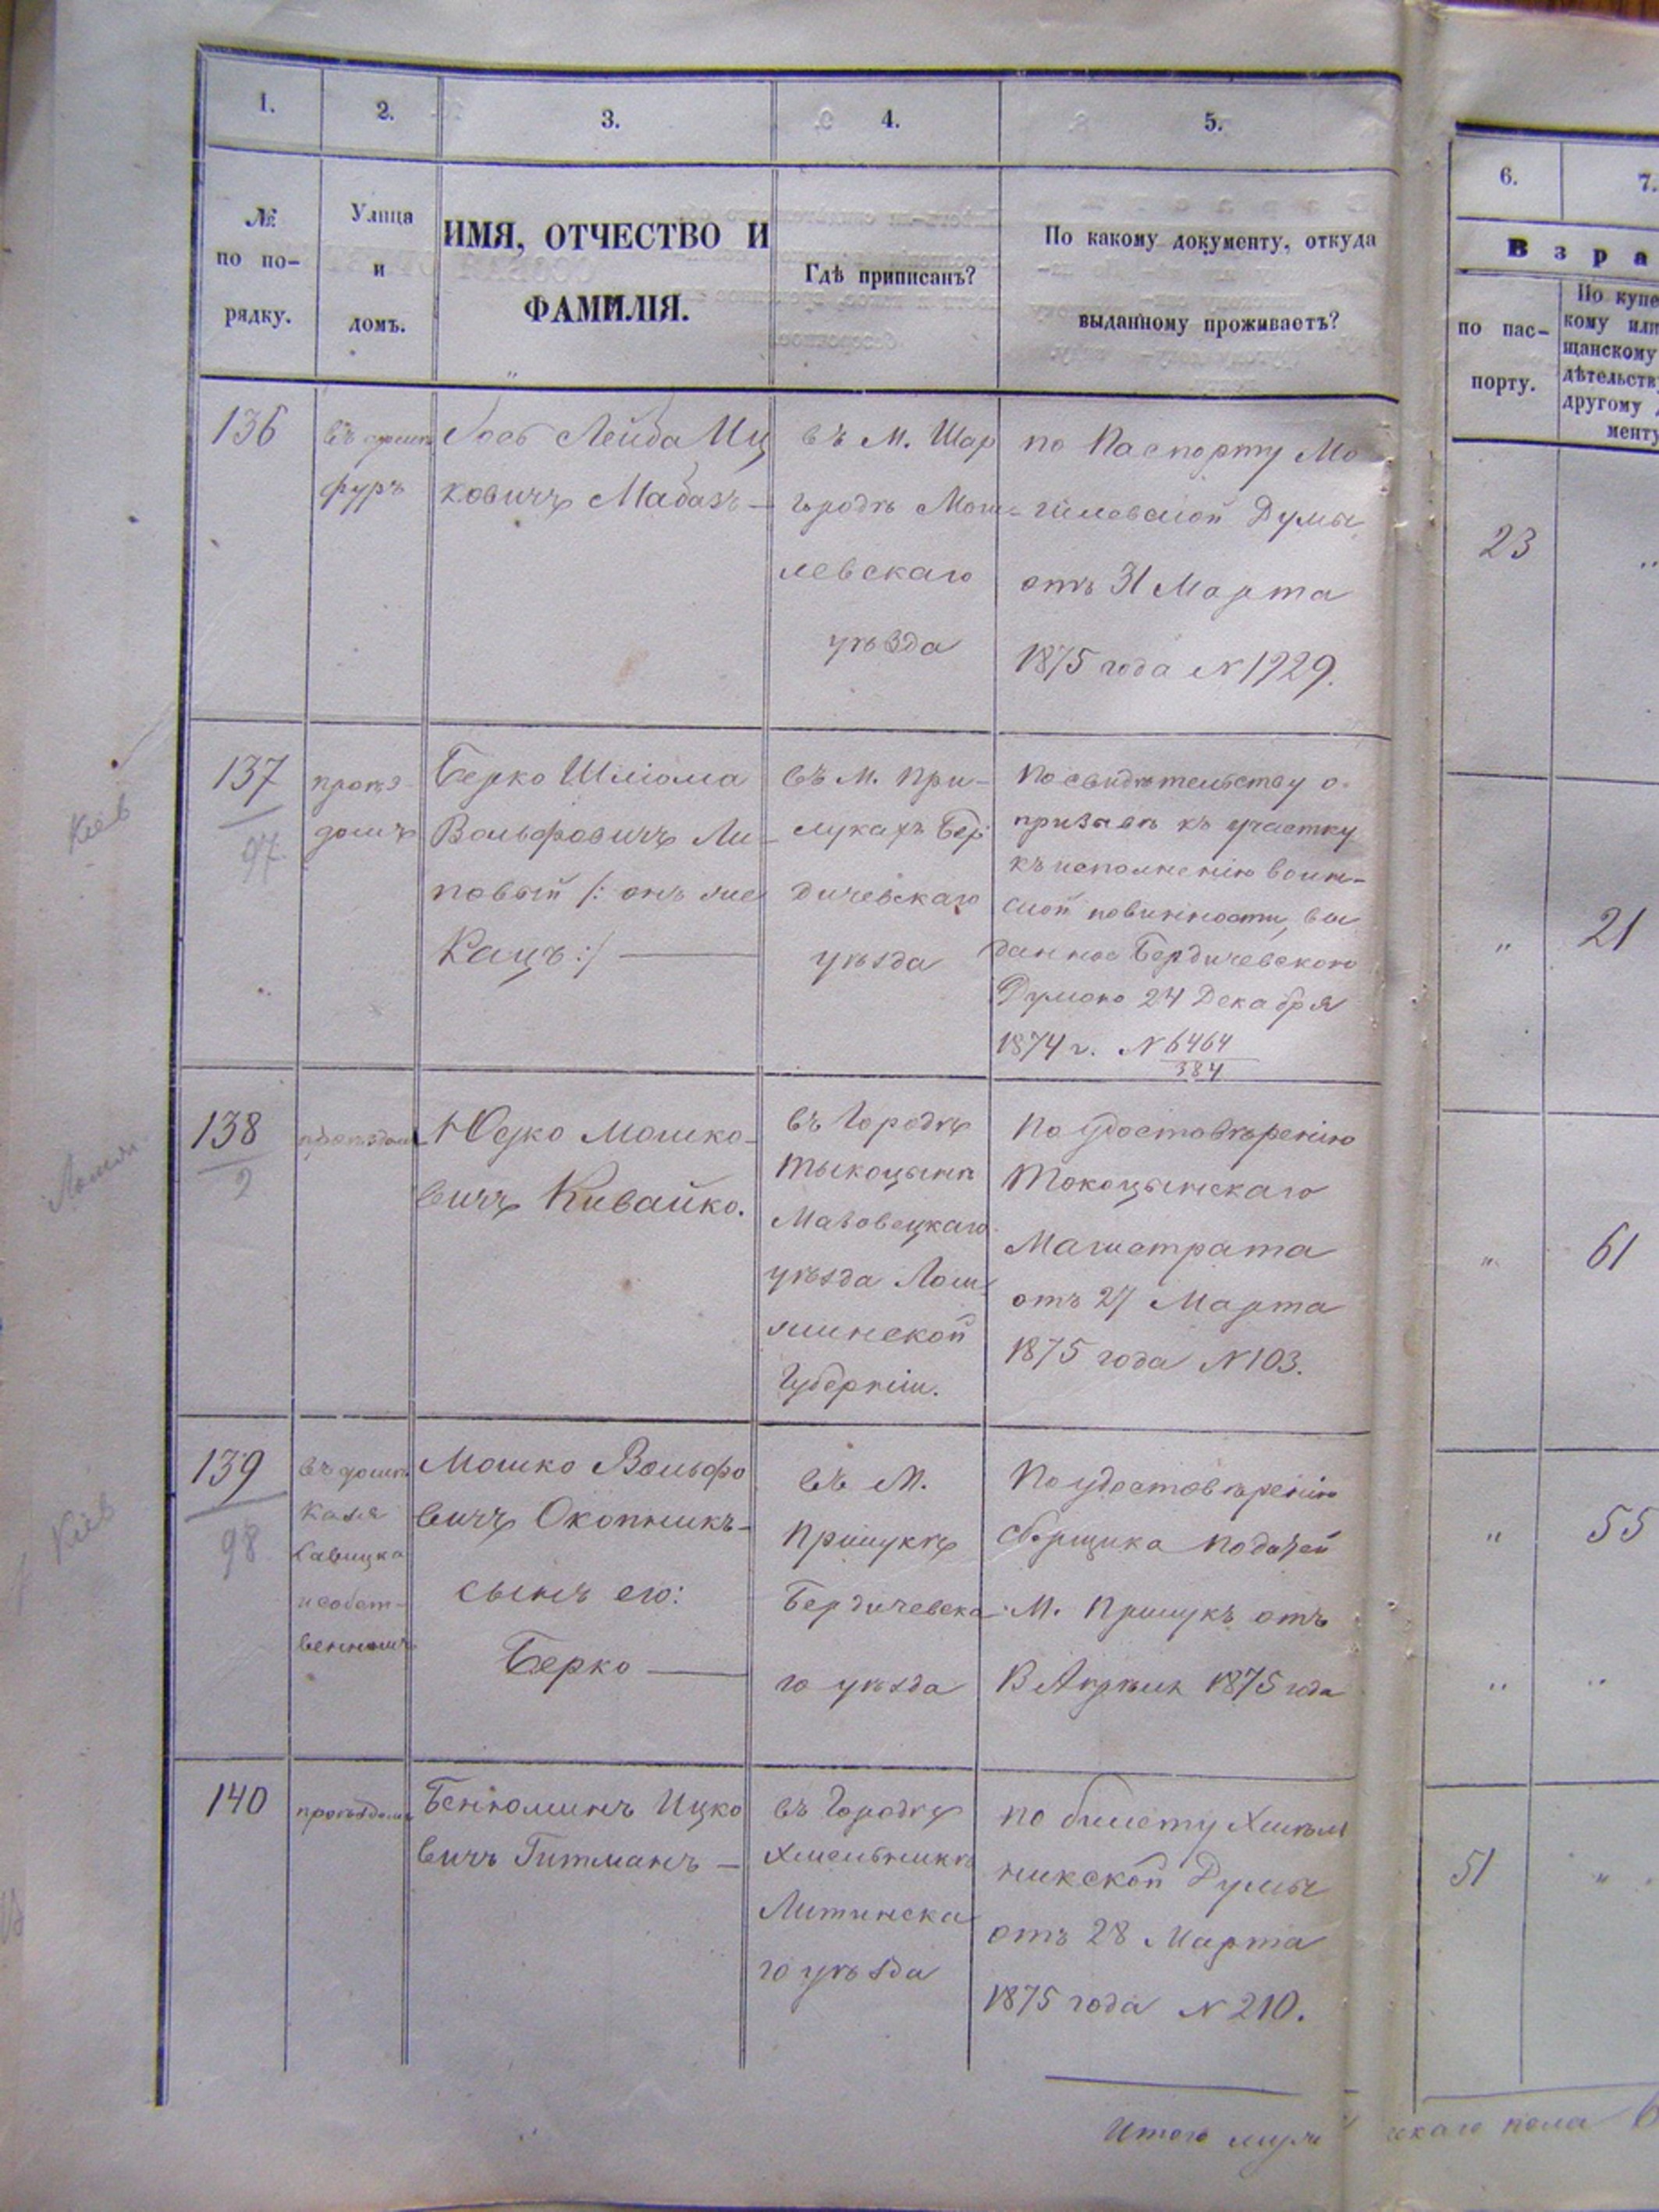 1.
2.
3.
4.
5.
6.
7.
№ по по-
рядку.
Улица
и
домъ.
ИМЯ, ОТЧЕСТВО И
ФАМИЛІЯ.
Гдѣ приписанъ?
По какому документу, откуда
выданному проживаетъ?
Возра
по пас-
порту.
По купе
кому или
щанскому
дѣтельств
другому
менту
136
въ
Лейба Иц
ковичъ
въ М. Шар
городѣ Моги-
левскаго
уѣзда
по Паспорту Мо
гилевской Думы
отъ 31 Марта
1875 года №1929.
23
137
97
проѣз
домъ
Берко Шліома
Вольфовичъ Ли-
повый /: онъ же
Кацъ :/
въ М. При-
лукахъ Бер
дичевскаго
уѣзда
По свидѣтельству о
призывѣ къ участку
къ исполненію воин-
ской повинности, вы
данное Бердичевскою
Думою 24 Декабря
1874 г. №6464
384
"
21
138
2
проѣздомъ
Юдко Мошко-
вичъ Кивайко.
въ Городѣ
Тыкоцынѣ
Мазовецкаго
уѣзда Лом
жинской
Губерніи.
По удостовѣренію
Токоцынскаго
Магистрата
отъ 27 Марта
1875 года №103.
"
61
139
98
въ домѣ
и собст-
веннымъ
Мошко Вольфо
вичъ Окопникъ-
сынъ его:
Берко
въ М.
Прилукѣ
Бердичевска
го уѣзда
По удостовѣренію
сборщика податей
М. Прилукъ отъ
Апрѣля 1875 года
"
55
140
проѣздомъ
Беніоминъ Ицко
вичъ Гитманъ —
въ Городѣ
Хмельникѣ
Литинска
го уѣзда
по билету Хмѣль
никской Думы
отъ 28 Марта
1875 года №210.
51
"
Итого мужескаго пола
Кіев
Кіев